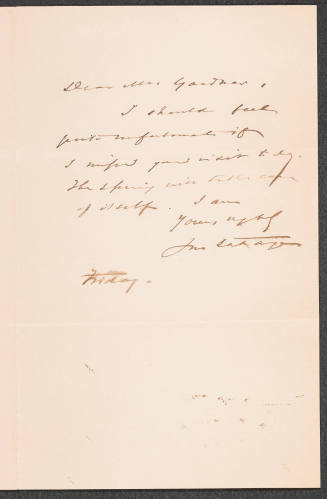 Dear Mrs Gardner,
I should feel
quite unfortunate if
I missed your visit to day.
The spring will take care
of itself. I am
Yours
Friday.